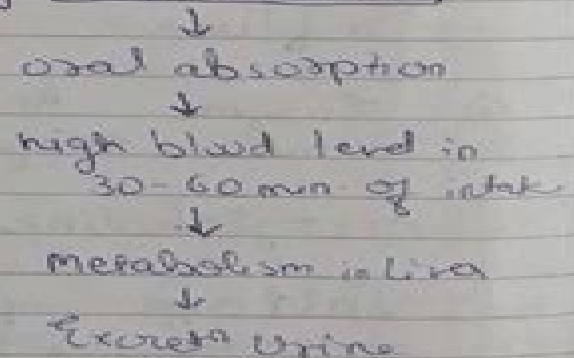 ↓
oral absorption
↓
high blood level in
30-60 min of intake
↓
metabolism in Liver
↓
Excretn Urine